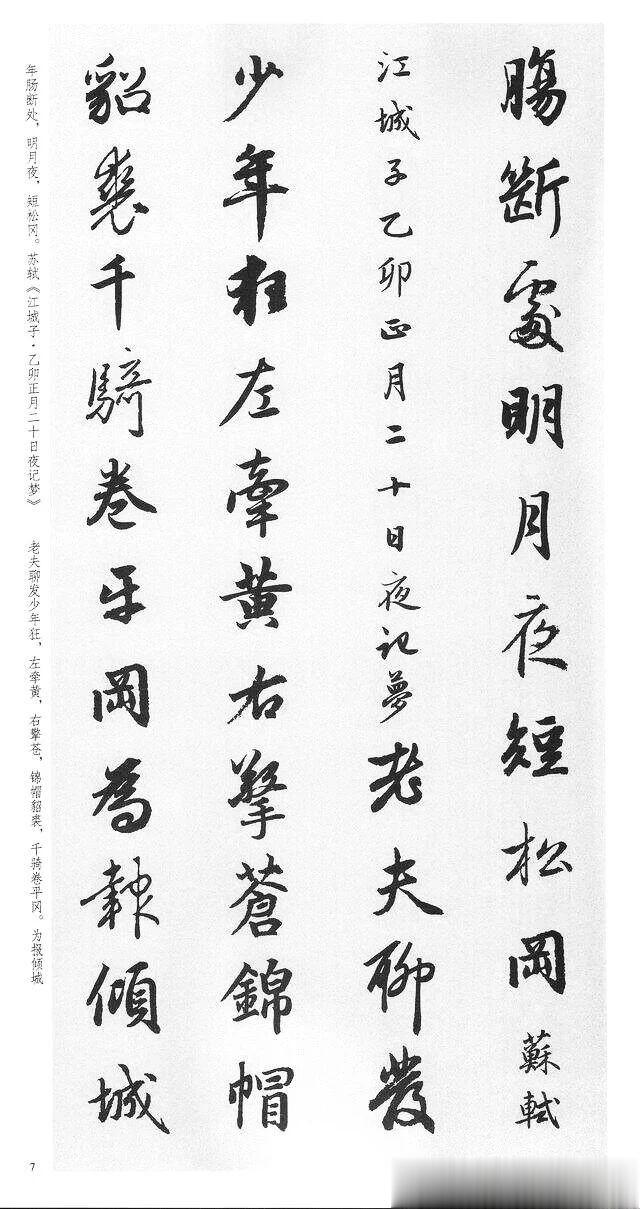 腸斷處明月夜短松岡蘇軾
江城子乙卯正月二十日夜記夢老夫聊發
少年狂左牽黄右擎蒼錦帽
貂裘千騎卷平岡為報傾城
年肠断处，明月夜，短松冈。苏轼《江城子·乙卯正月二十日夜记梦》 老夫聊发少年狂，左牵黄，右擎苍，锦帽貂裘，千骑卷平冈。为报倾城
7